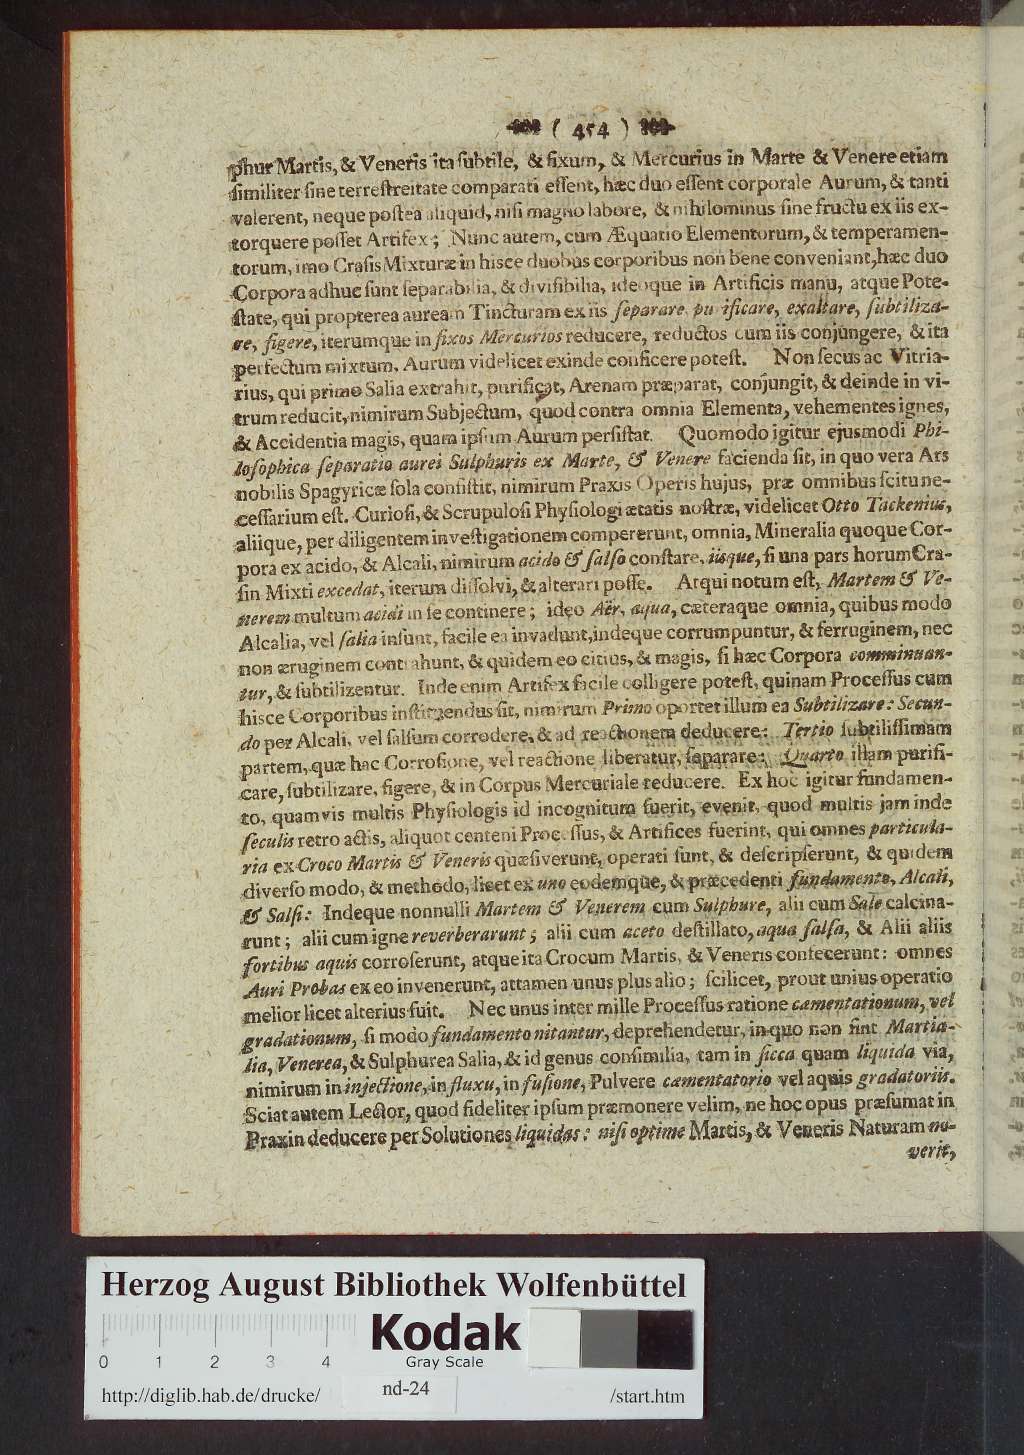 ( 454 )
phur Martis, & Veneris ita ſubtile, & fixum, & Mercurius in Marte & Venere etiam
ſimiliter ſine terreſtreitate comparati eſſent, hæc duo eſſent corporale Aurum, & tanti
valerent, neque poſtea aliquid, niſi magno labore, & nihilominus ſine fructu ex iis ex-
torquere poſſet Artifex; Nunc autem, cum Æquatio Elementorum, & temperamen-
torum, imo Craſis Mixturæ in hisce duobus corporibus non bene conveniant, hæc duo
Corpora adhuc ſunt ſeparabilia, & diviſibilia, ideoque in Artificis manu, atque Pote-
ſtate, qui propterea auream Tincturam ex iis ſeparare, purificare, exaltare, ſubtiliza-
re, figere, iterumque in fixos Mercurios reducere, reductos cum iis conjungere, & ita
perfectum mixtum, Aurum videlicet exinde conficere poteſt. Non ſecus ac Vitria-
rius, qui primo Salia extrahit, purificat, Arenam præparat, conjungit, & deinde in vi-
trum reducit, nimirum Subjectum, quod contra omnia Elementa, vehementes ignes,
& Accidentia magis, quam ipſum Aurum perſiſtat. Quomodo igitur ejusmodi Phi-
loſophica ſeparatio aurei Sulphuris ex Marte, & Venere facienda ſit, in quo vera Ars
nobilis Spagyricæ ſola conſiſtit, nimirum Praxis Operis hujus, præ omnibus ſcitu ne-
ceſſarium eſt. Curioſi, & Scrupuloſi Phyſiologi ætatis noſtræ, videlicet Otto Tackenius,
aliique, per diligentem inveſtigationem compererunt, omnia, Mineralia quoque Cor-
pora ex acido, & Alcali, nimirum acido & ſalſo conſtare, iisque, ſi una pars horum Cra-
ſin Mixti excedat, iterum diſſolvi, & alterari poſſe. Atqui notum eſt, Martem & Ve-
nerem multum acidi in ſe continere; ideo Aër, aqua, cæteraque omnia, quibus modo
Alcalia, vel ſalia inſunt, facile ea invadunt, indeque corrumpuntur, & ferruginem, nec
non æruginem contrahunt, & quidem eo citius, & magis, ſi hæc Corpora comminuan-
tur, & ſubtilizentur. Inde enim Artifex facile colligere poteſt, quinam Proceſſus cum
hisce Corporibus inſtituendus ſit, nimirum Primo oportet illum ea Subtilizare: Secun-
do per Alcali, vel ſalſum corrodere, & ad reactionem deducere: Tertio ſubtiliſſimam
partem, quæ hac Corroſione, vel reactione liberatur, ſeparare: Quarto illam purifi-
care, ſubtilizare, figere, & in Corpus Mercuriale reducere. Ex hoc igitur fundamen-
to, quamvis multis Phyſiologis id incognitum fuerit, evenit, quod multis jam inde
ſeculis retro actis, aliquot centeni Proceſſus, & Artifices fuerint, qui omnes particula-
ria ex Croco Martis & Veneris quæſiverunt, operati ſunt, & deſcripſerunt, & quidem
diverſo modo, & methodo, licet ex uno eodemque, & præcedenti fundamento, Alcali,
& Salſi: Indeque nonnulli Martem & Venerem cum Sulphure, alii cum Sale calcina-
runt; alii cum igne reverberarunt; alii cum aceto deſtillato, aqua ſalſa, & Alii aliis
fortibus aquis corroſerunt, atque ita Crocum Martis, & Veneris confecerunt: omnes
Auri Probas ex eo invenerunt, attamen unus plus alio; ſcilicet, prout unius operatio
melior licet alterius fuit. Nec unus inter mille Proceſſus ratione cæmentationum, vel
gradationum, ſi modo fundamento nitantur, deprehendetur, in quo non ſint Martia-
lia, Venerea, & Sulphurea Salia, & id genus conſimilia, tam in ſicca quam liquida via,
nimirum in injectione, in fluxu, in fuſione, Pulvere cæmentatorio vel aquis gradatoriis.
Sciat autem Lector, quod fideliter ipſum præmonere velim, ne hoc opus præſumat in
Praxin deducere per Solutiones liquidas: niſi optime Martis, & Veneris Naturam no-
verit,
Herzog August Bibliothek Wolfenbüttel
0 1 2 3 4
Kodak
Gray Scale
http://diglib.hab.de/drucke/ nd-24 /start.htm